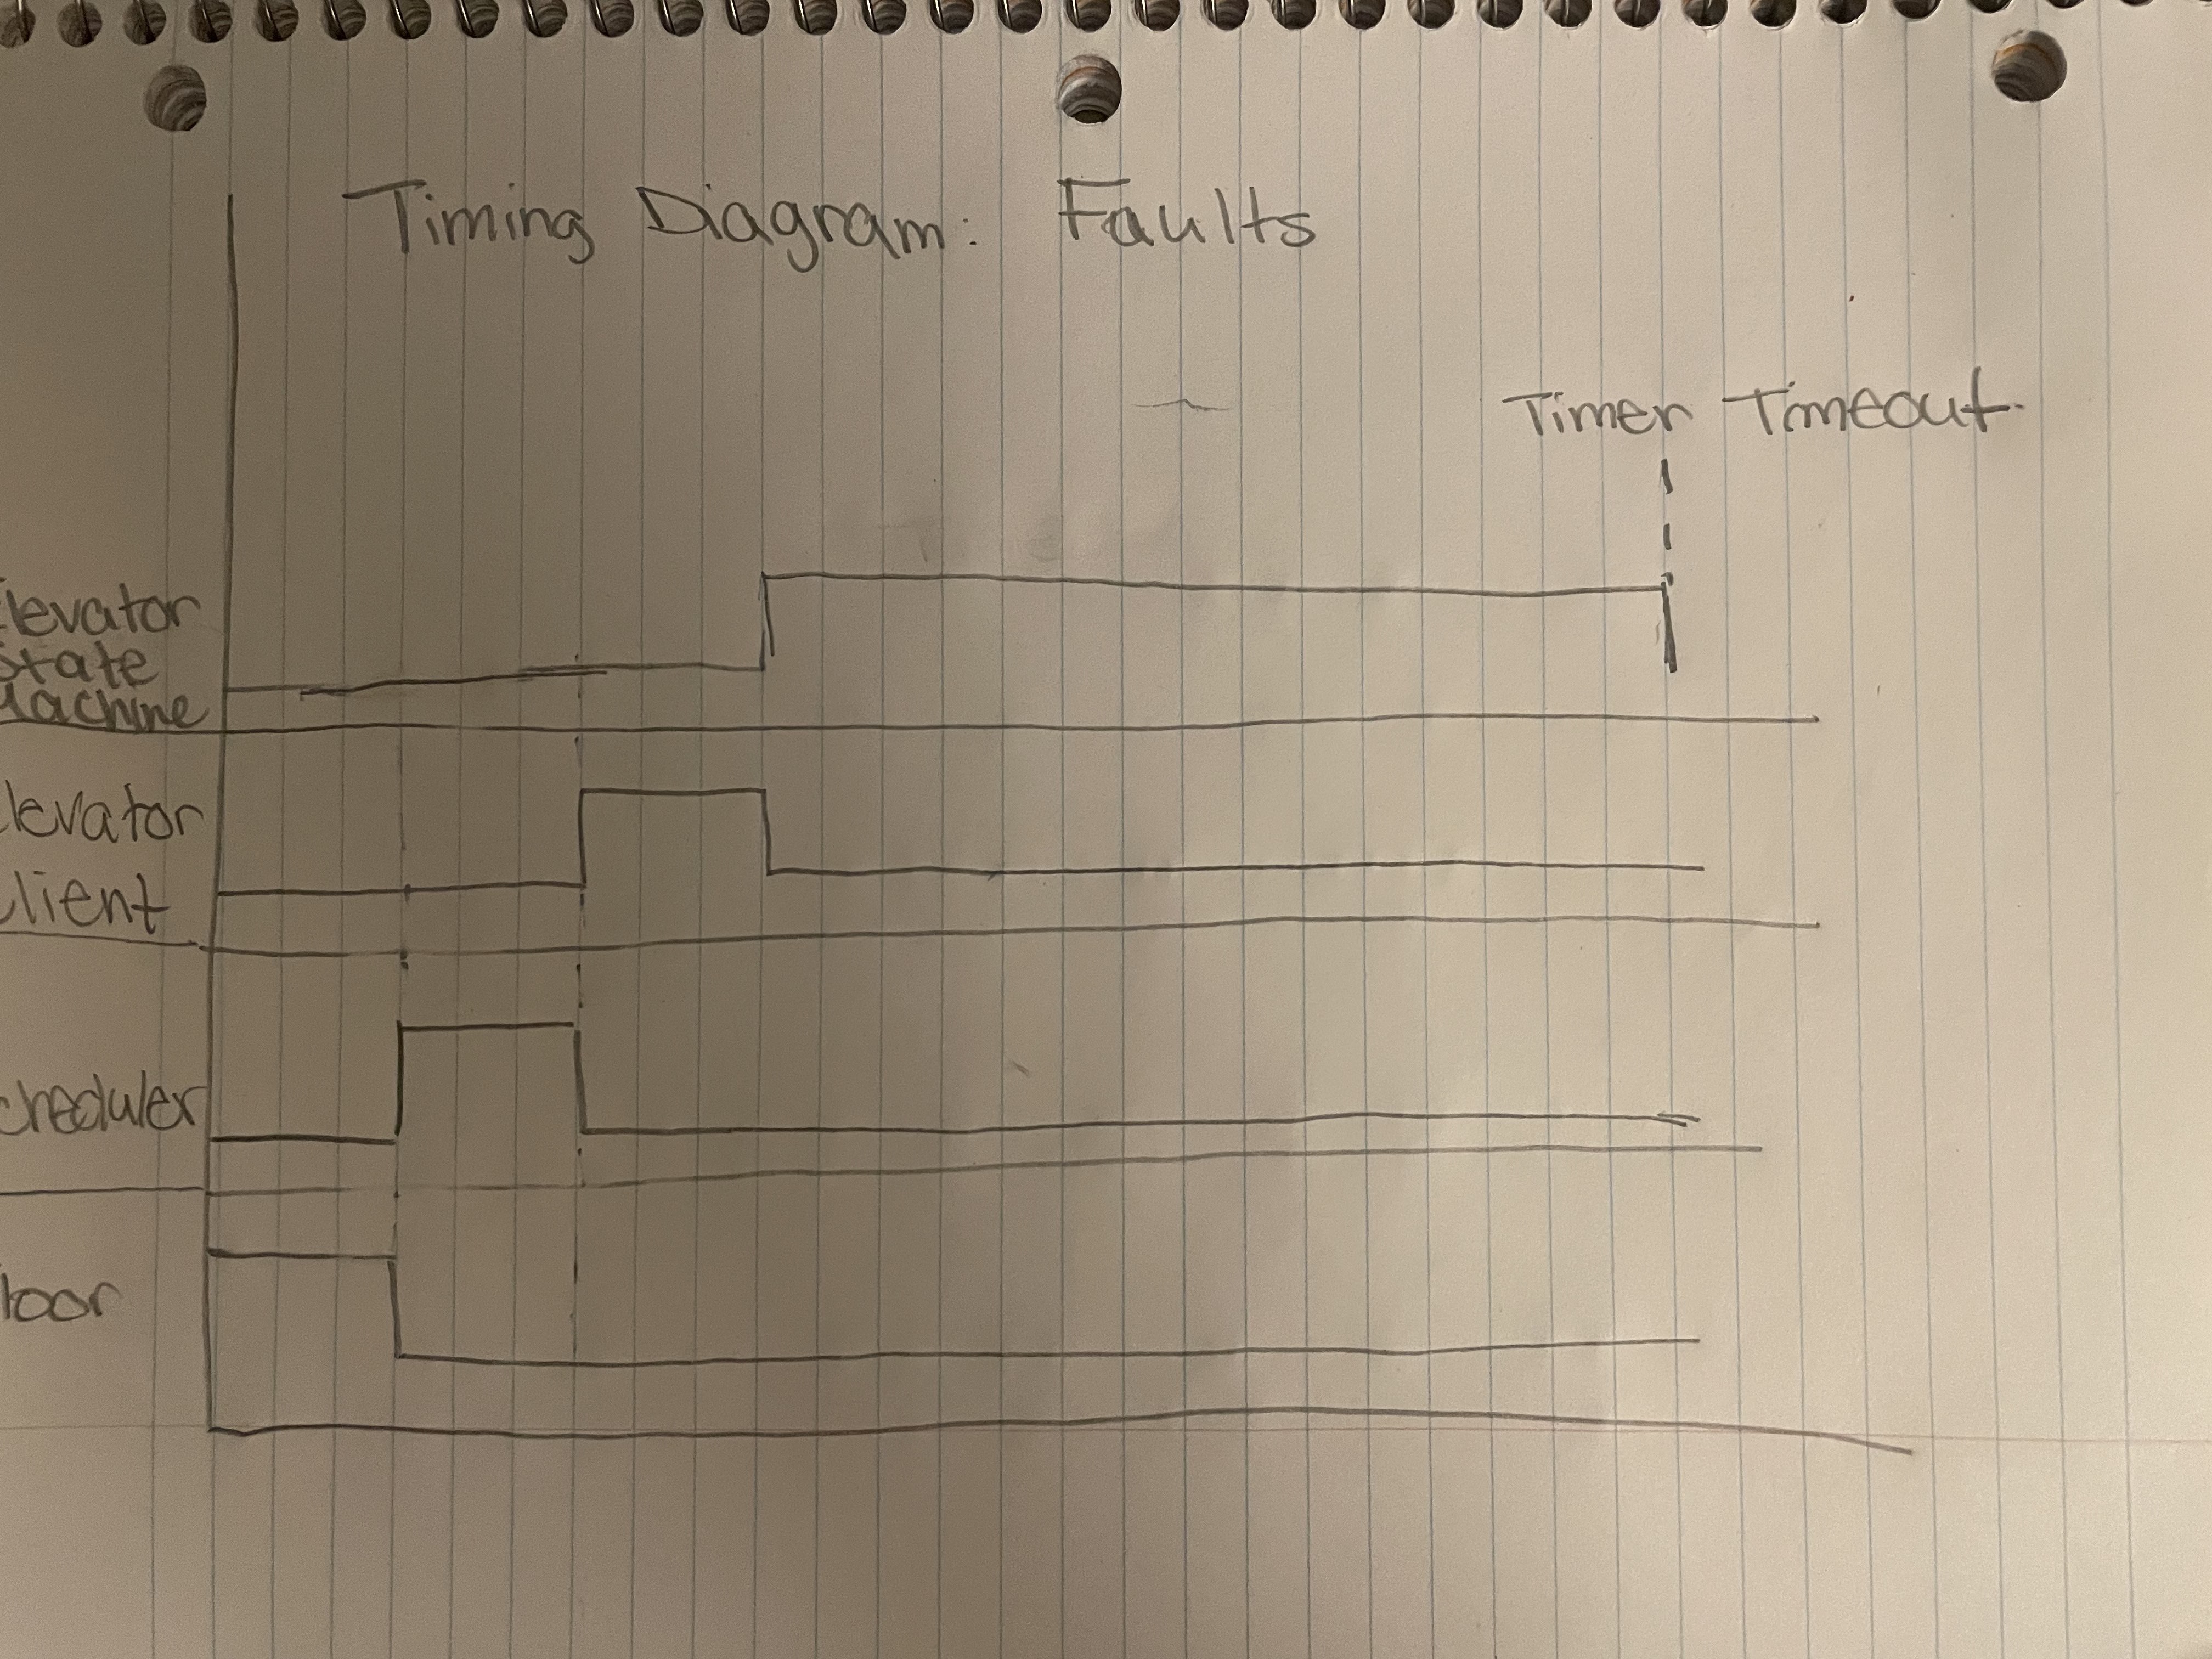 Timing Diagram: Faults
Timer Timeout
levator
State
Machine
levator
Client
cheduler
loor